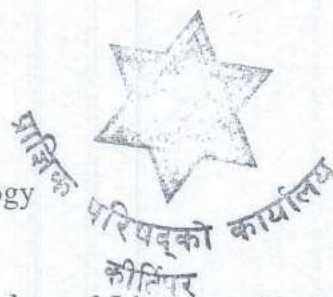 ogy
प्राज्ञिक परिषद्को कार्यालय
कीर्तिपुर